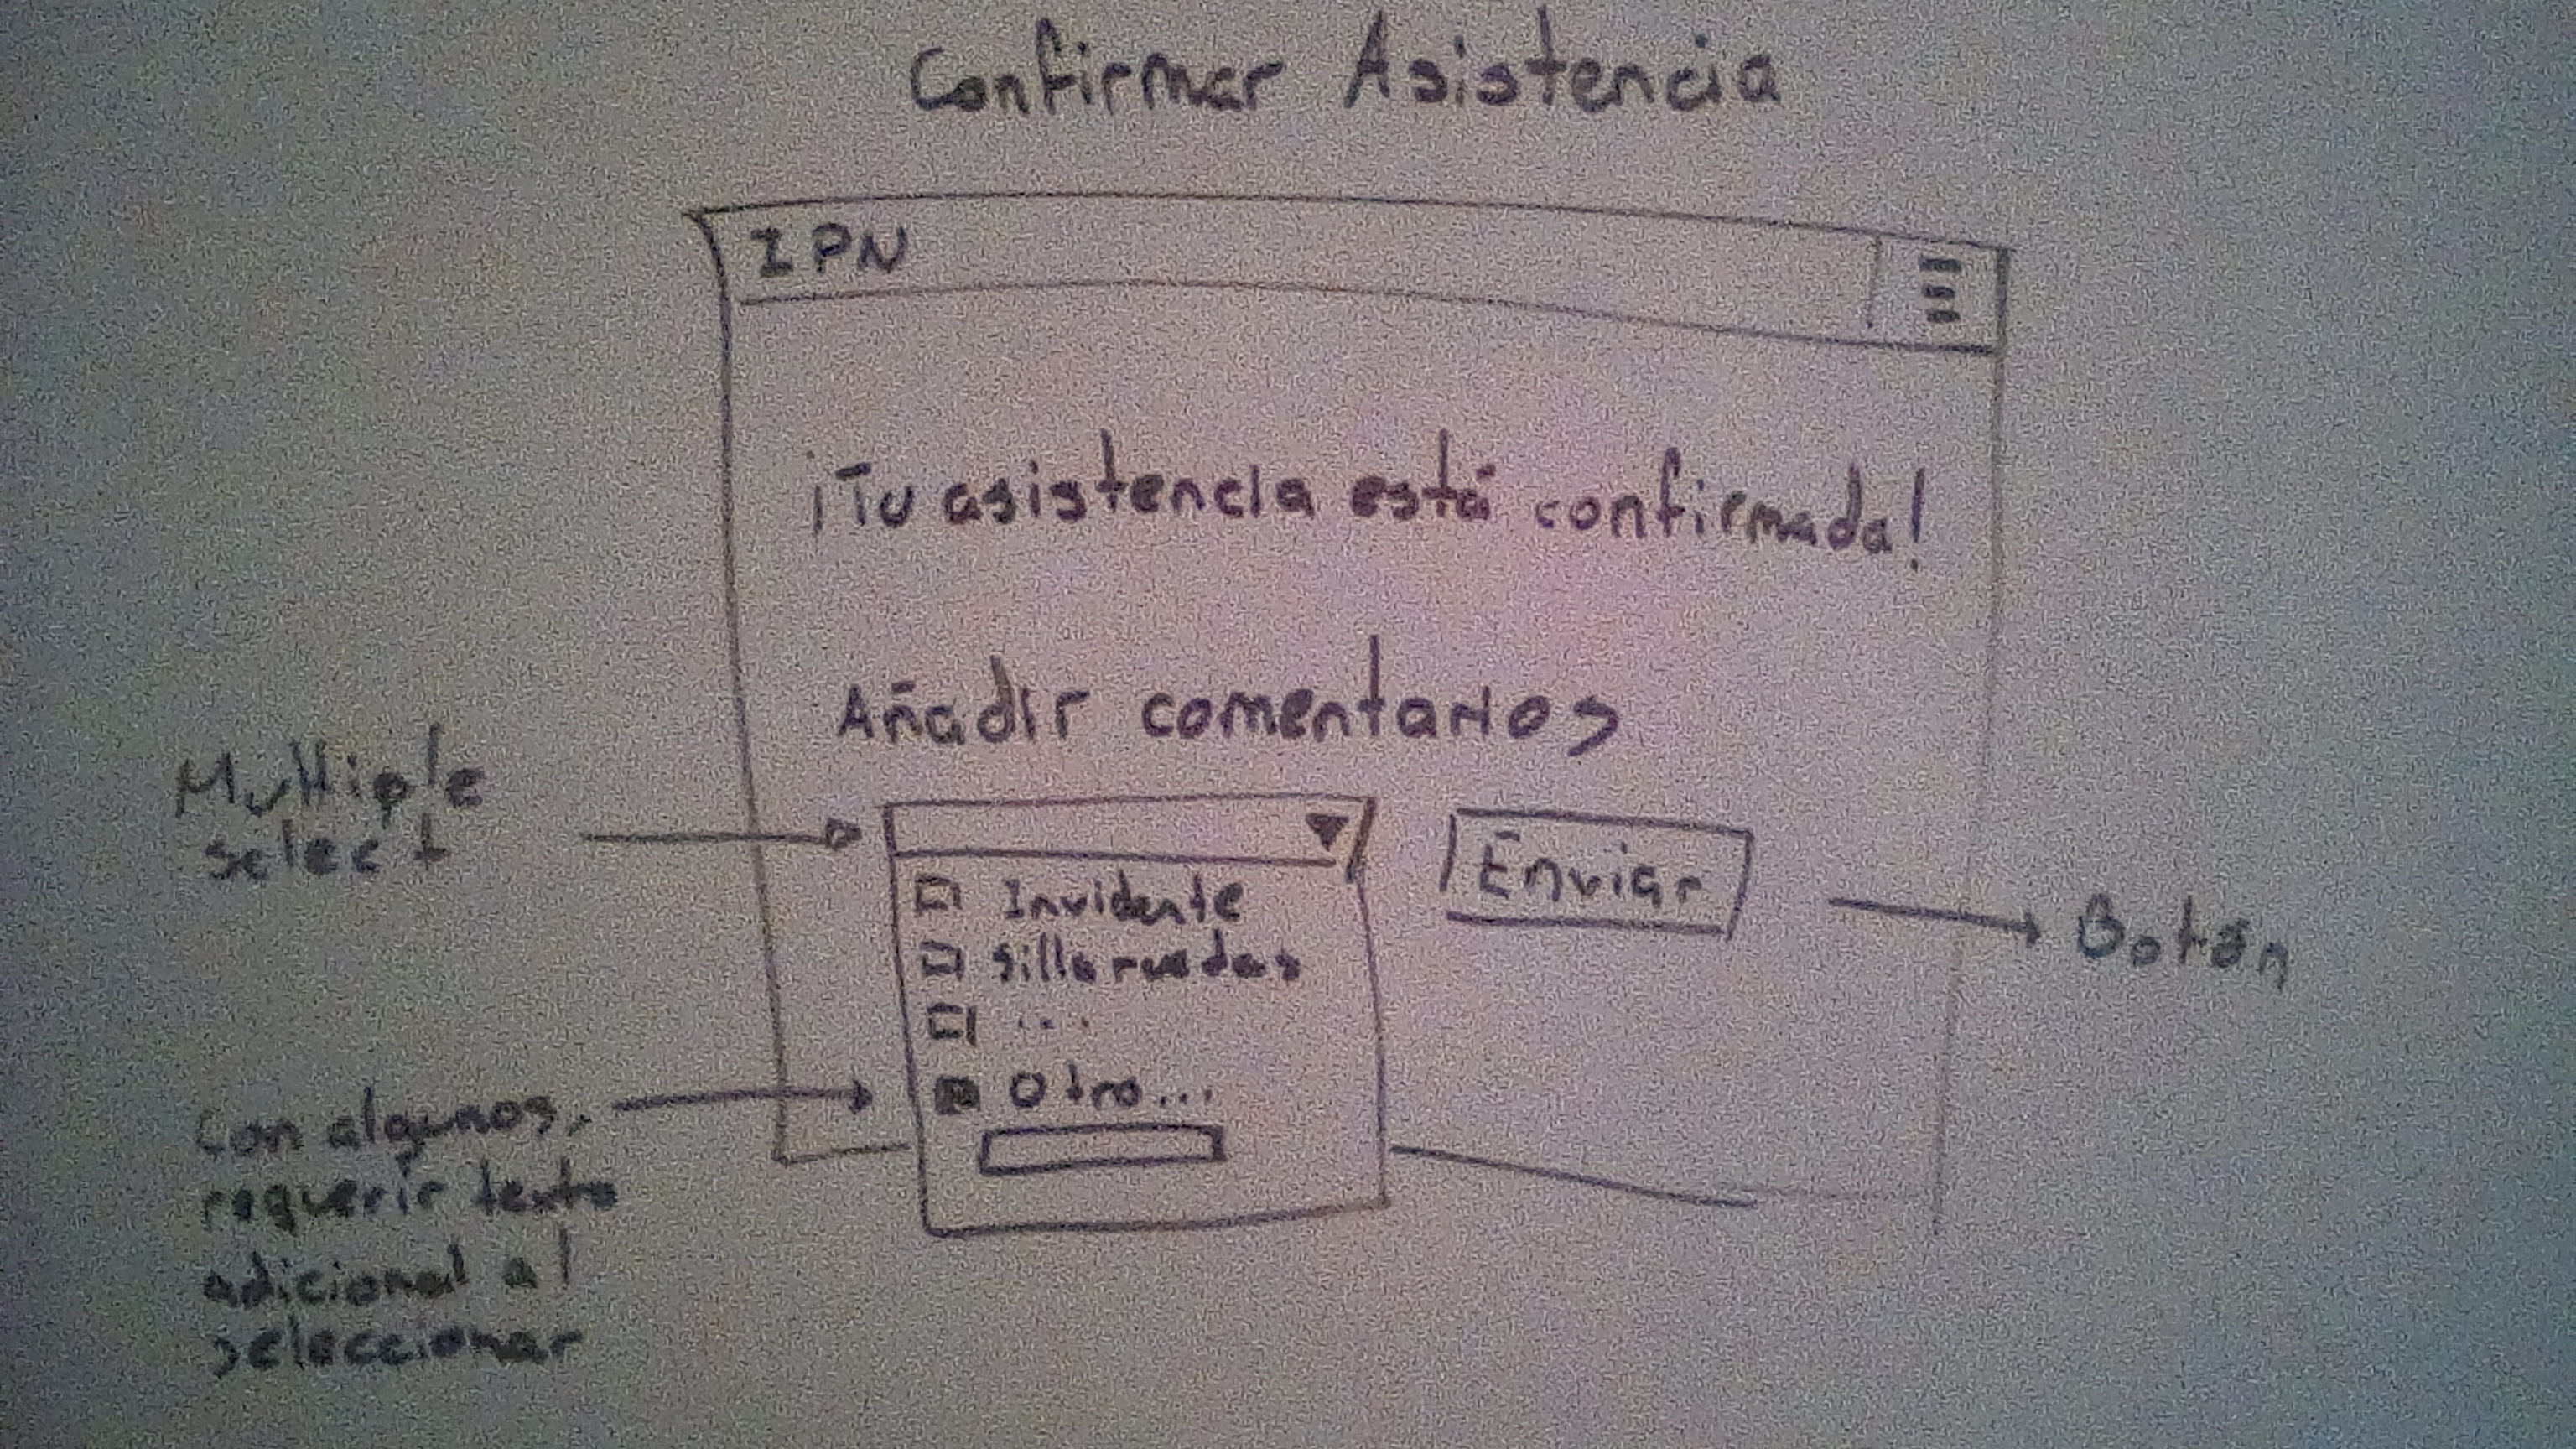 Confirmar Asistencia
IPN
¡Tu asistencia está confirmada!
Añadir comentarios
Multiple
select
Enviar
Botón
Invidente
silla ruedas
...
Otro...
Con algunos,
requerir texto
adicional al
seleccionar